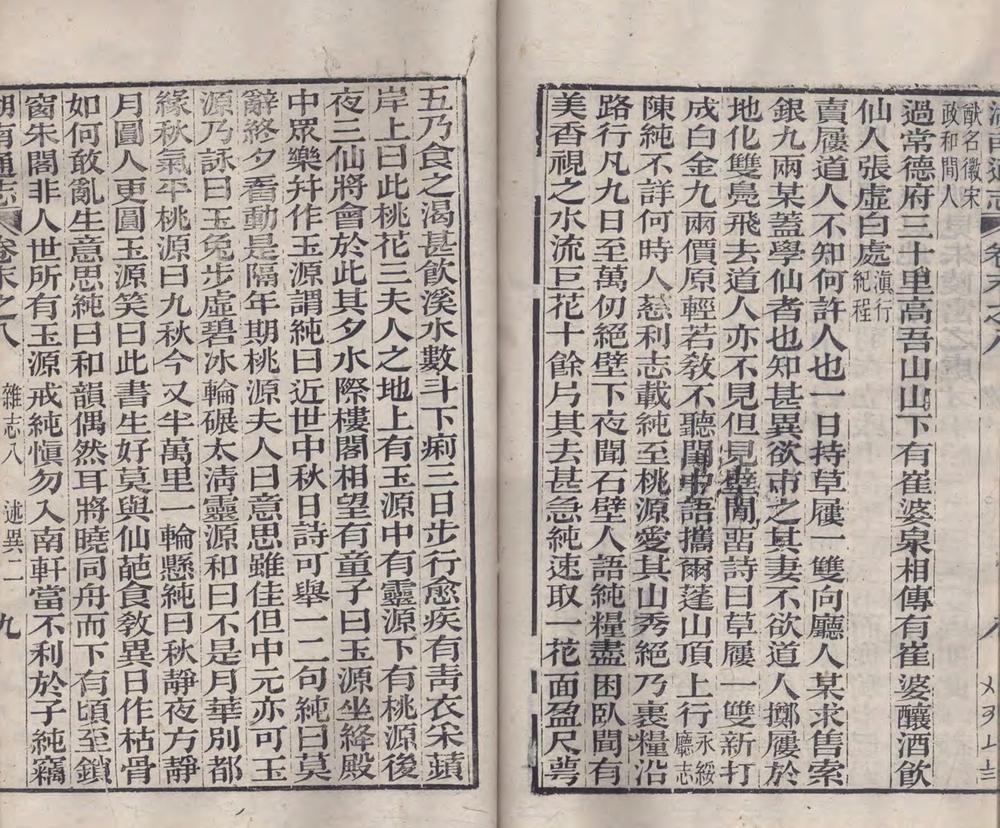 猷名徽宋
政和間人
過常德府三十里高吾山山下有崔婆泉相傳有崔婆釀酒飲
仙人張虛白處滇行紀程
賣屨道人不知何許人也一日持草屨一雙向廳人某求售索
銀九兩某蓋學仙者也知甚異欲市之其妻不欲道人擲屨於
地化雙鳧飛去道人亦不見但見壁間留詩曰草屨一雙新打
成白金九兩價原輕若敎不聽閨中語攜爾蓬山頂上行永綏廳志
陳純不詳何時人慈利志載純至桃源愛其山秀絕乃裹糧沿
路行凡九日至萬仞絕壁下夜聞石壁人語純糧盡困臥聞有
美香視之水流巨花十餘片其去甚急純速取一花面盈尺萼
五乃食之渴甚飲溪水數斗下痢三日步行愈疾有靑衣宋蘋
岸上曰此桃花三夫人之地上有玉源中有靈源下有桃源後
夜三仙將會於此其夕水際樓閣相望有童子曰玉源坐絳殿
中眾樂幷作玉源謂純曰近世中秋日詩可舉一二句純曰莫
辭終夕看動是隔年期桃源夫人曰意思雖佳但中元亦可玉
源乃詠曰玉兔步虛碧冰輪碾太淸靈源和曰不是月華別都
緣秋氣平桃源曰九秋今又半萬里一輪懸純曰秋靜夜方靜
月圓人更圓玉源笑曰此書生好莫與仙葩食敎異日作枯骨
如何敢亂生意思純曰和韻偶然耳將曉同舟而下有頃至鎖
窗朱閣非人世所有玉源戒純愼勿入南軒當不利於子純竊
湖南通志 卷末之八 雜志八 述異二 九